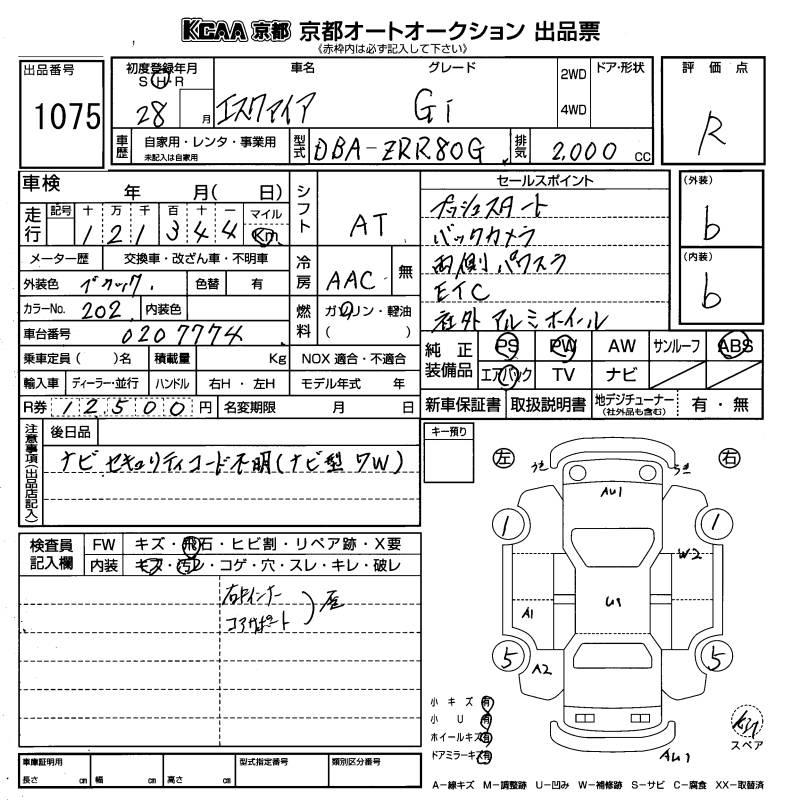 KCAA 京都 京都オートオークション 出品票
《赤枠内は必ず記入して下さい》
出品番号
1075
初度登録年月
S H R
28 月
車名
エスクァイア
グレード
Gi
2WD
4WD
ドア・形状
評価点
R
車歴
自家用・レンタ・事業用
未記入は自家用
型式
DBA-ZRR80G
排気
2,000 cc
車検
年 月( 日)
走行
記号 十 万 千 百 十 一 マイル
1 2 1 3 4 4 Km
メーター歴 交換車・改ざん車・不明車
外装色
色替 有
カラーNo. 202 内装色
車台番号 0207774
乗車定員( )名 積載量 Kg
輸入車 ディーラー・並行 ハンドル 右H・左H
R券 12500円 名変期限 月 日
シフト
AT
冷房
AAC 無
燃料
ガソリン・軽油
( )
NOX 適合・不適合
モデル年式 年
セールスポイント
プッシュスタート
バックカメラ
両側パワスラ
ETC
社外アルミホイール
(外装)
b
(内装)
b
純正装備品
PS PW AW サンルーフ ABS
エアバック TV ナビ
新車保証書 取扱説明書 地デジチューナー
(社外品も含む)
有・無
注意事項(出品店記入)
後日品
ナビセキュリティコード不明(ナビ型7W)
キー預り
検査員記入欄
FW キズ・飛石・ヒビ割・リペア跡・X要
内装 キズ・汚レ・コゲ・穴・スレ・キレ・破レ
右Fインナー
コアサポート
左 右
うき うき
AU1
1 1
W-2
U1
A1
5 5
A2
小キズ 有
小U 有
ホイールキズ 有
ドアミラーキズ 有
スペア
AU1
車庫証明用
長さ cm 幅 cm 高さ cm
型式指定番号
類別区分番号
A-線キズ M-調整跡 U-凹み W-補修跡 S-サビ C-腐食 XX-取替済